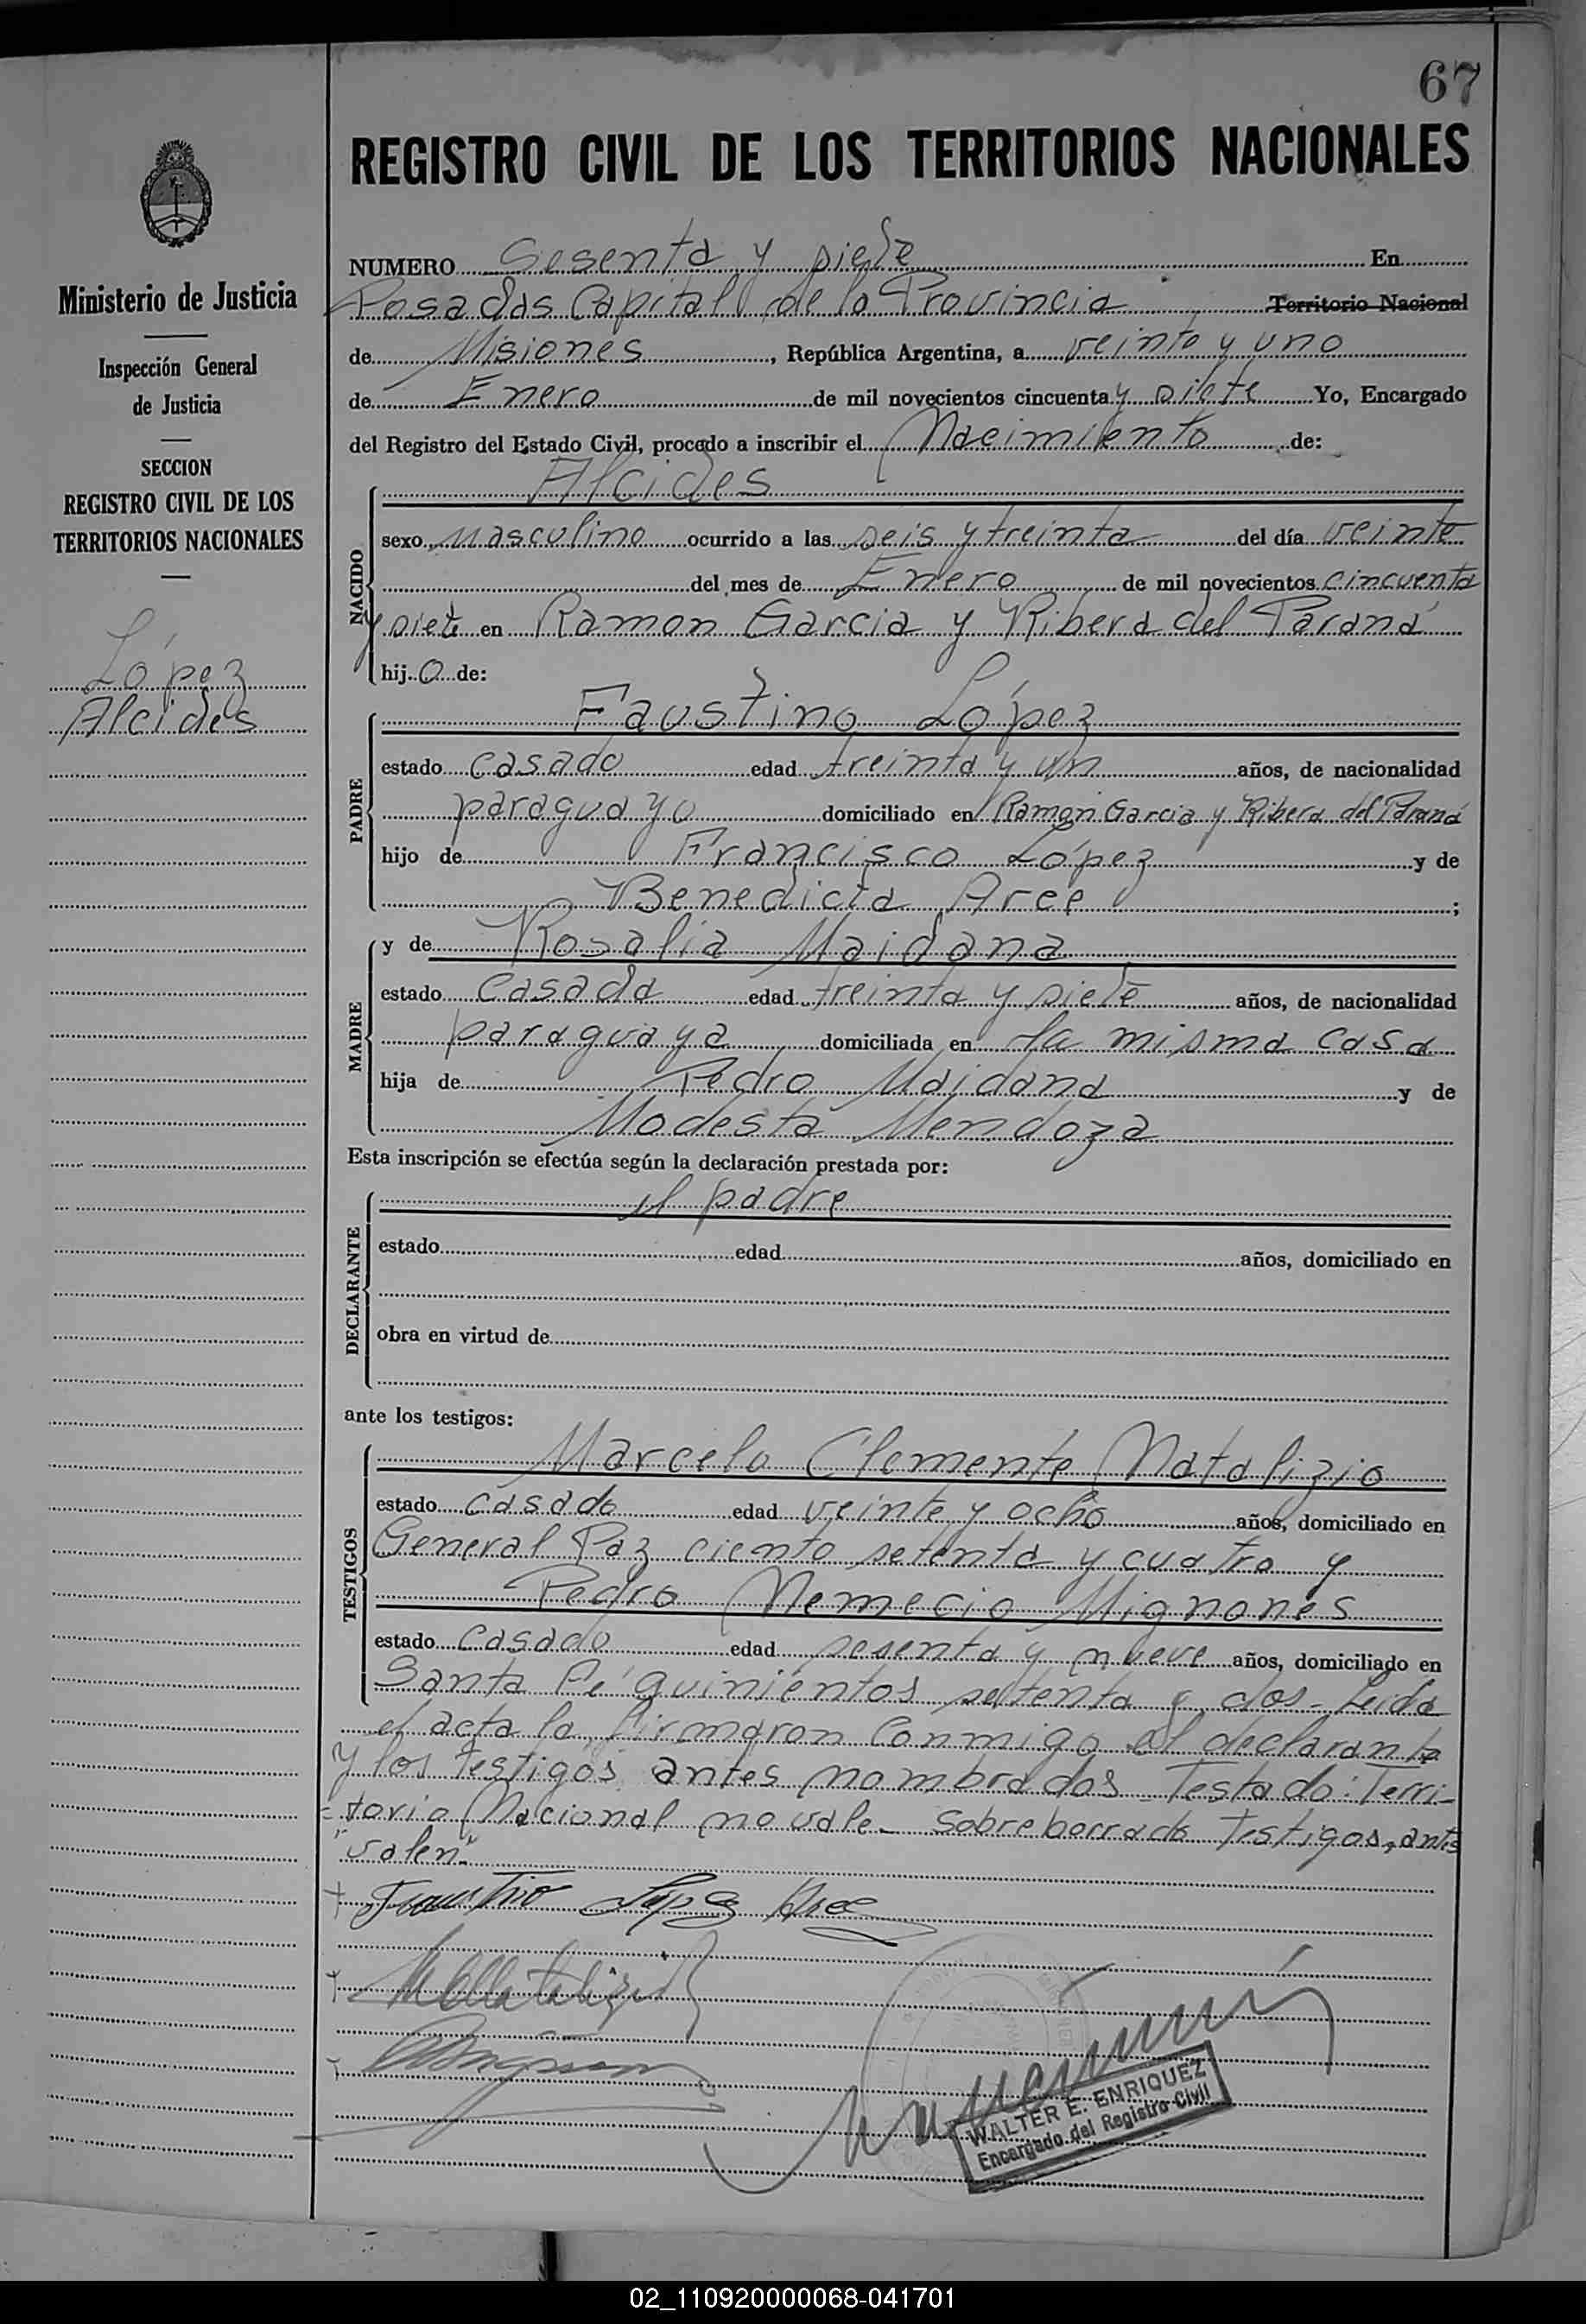 67
REGISTRO CIVIL DE LOS TERRITORIOS NACIONALES
Ministerio de Justicia
Inspección General
de Justicia
SECCION
REGISTRO CIVIL DE LOS
TERRITORIOS NACIONALES
López
Alcides
NUMERO Sesenta y siete En
Posadas Capital de la Provincia Territorio Nacional
de Misiones, República Argentina, a veinte y uno
de Enero de mil novecientos cincuenta y siete Yo, Encargado
del Registro del Estado Civil, procedo a inscribir el Nacimiento de:
NACIDO
Alcides
sexo masculino ocurrido a las seis y treinta del día veinte
del mes de Enero de mil novecientos cincuenta
y siete en Ramon Garcia y Ribera del Paraná
hijo de:
PADRE
Faustino López
estado casado edad treinta y un años, de nacionalidad
paraguayo domiciliado en Ramon Garcia y Ribera del Paraná
hijo de Francisco López y de
Benedicta Arce;
MADRE
y de Rosalia Maidana
estado casada edad treinta y siete años, de nacionalidad
paraguaya domiciliada en la misma casa
hija de Pedro Maidana y de
Modesta Mendoza
Esta inscripción se efectúa según la declaración prestada por:
DECLARANTE
el padre
estado edad años, domiciliado en
obra en virtud de
ante los testigos:
TESTIGOS
Marcelo Clemente Natalizio
estado casado edad veinte y ocho años, domiciliado en
General Paz ciento setenta y cuatro y
Pedro Nemecio Mignonés
estado casado edad sesenta y nueve años, domiciliado en
Santa Fé quinientos setenta y dos - Leida
el acta la firmaron conmigo el declarante
y los testigos antes nombrados - Testado: Terri-
=torio Nacional no vale - Sobreborrado testigos, antes
"valen"
Faustino López Arce
WALTER E. ENRIQUEZ
Encargado del Registro Civil
02_110920000068-041701